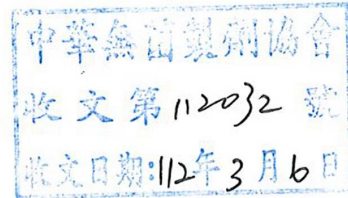 中華無菌製劑協會
收文第112032號
收文日期:112年3月6日